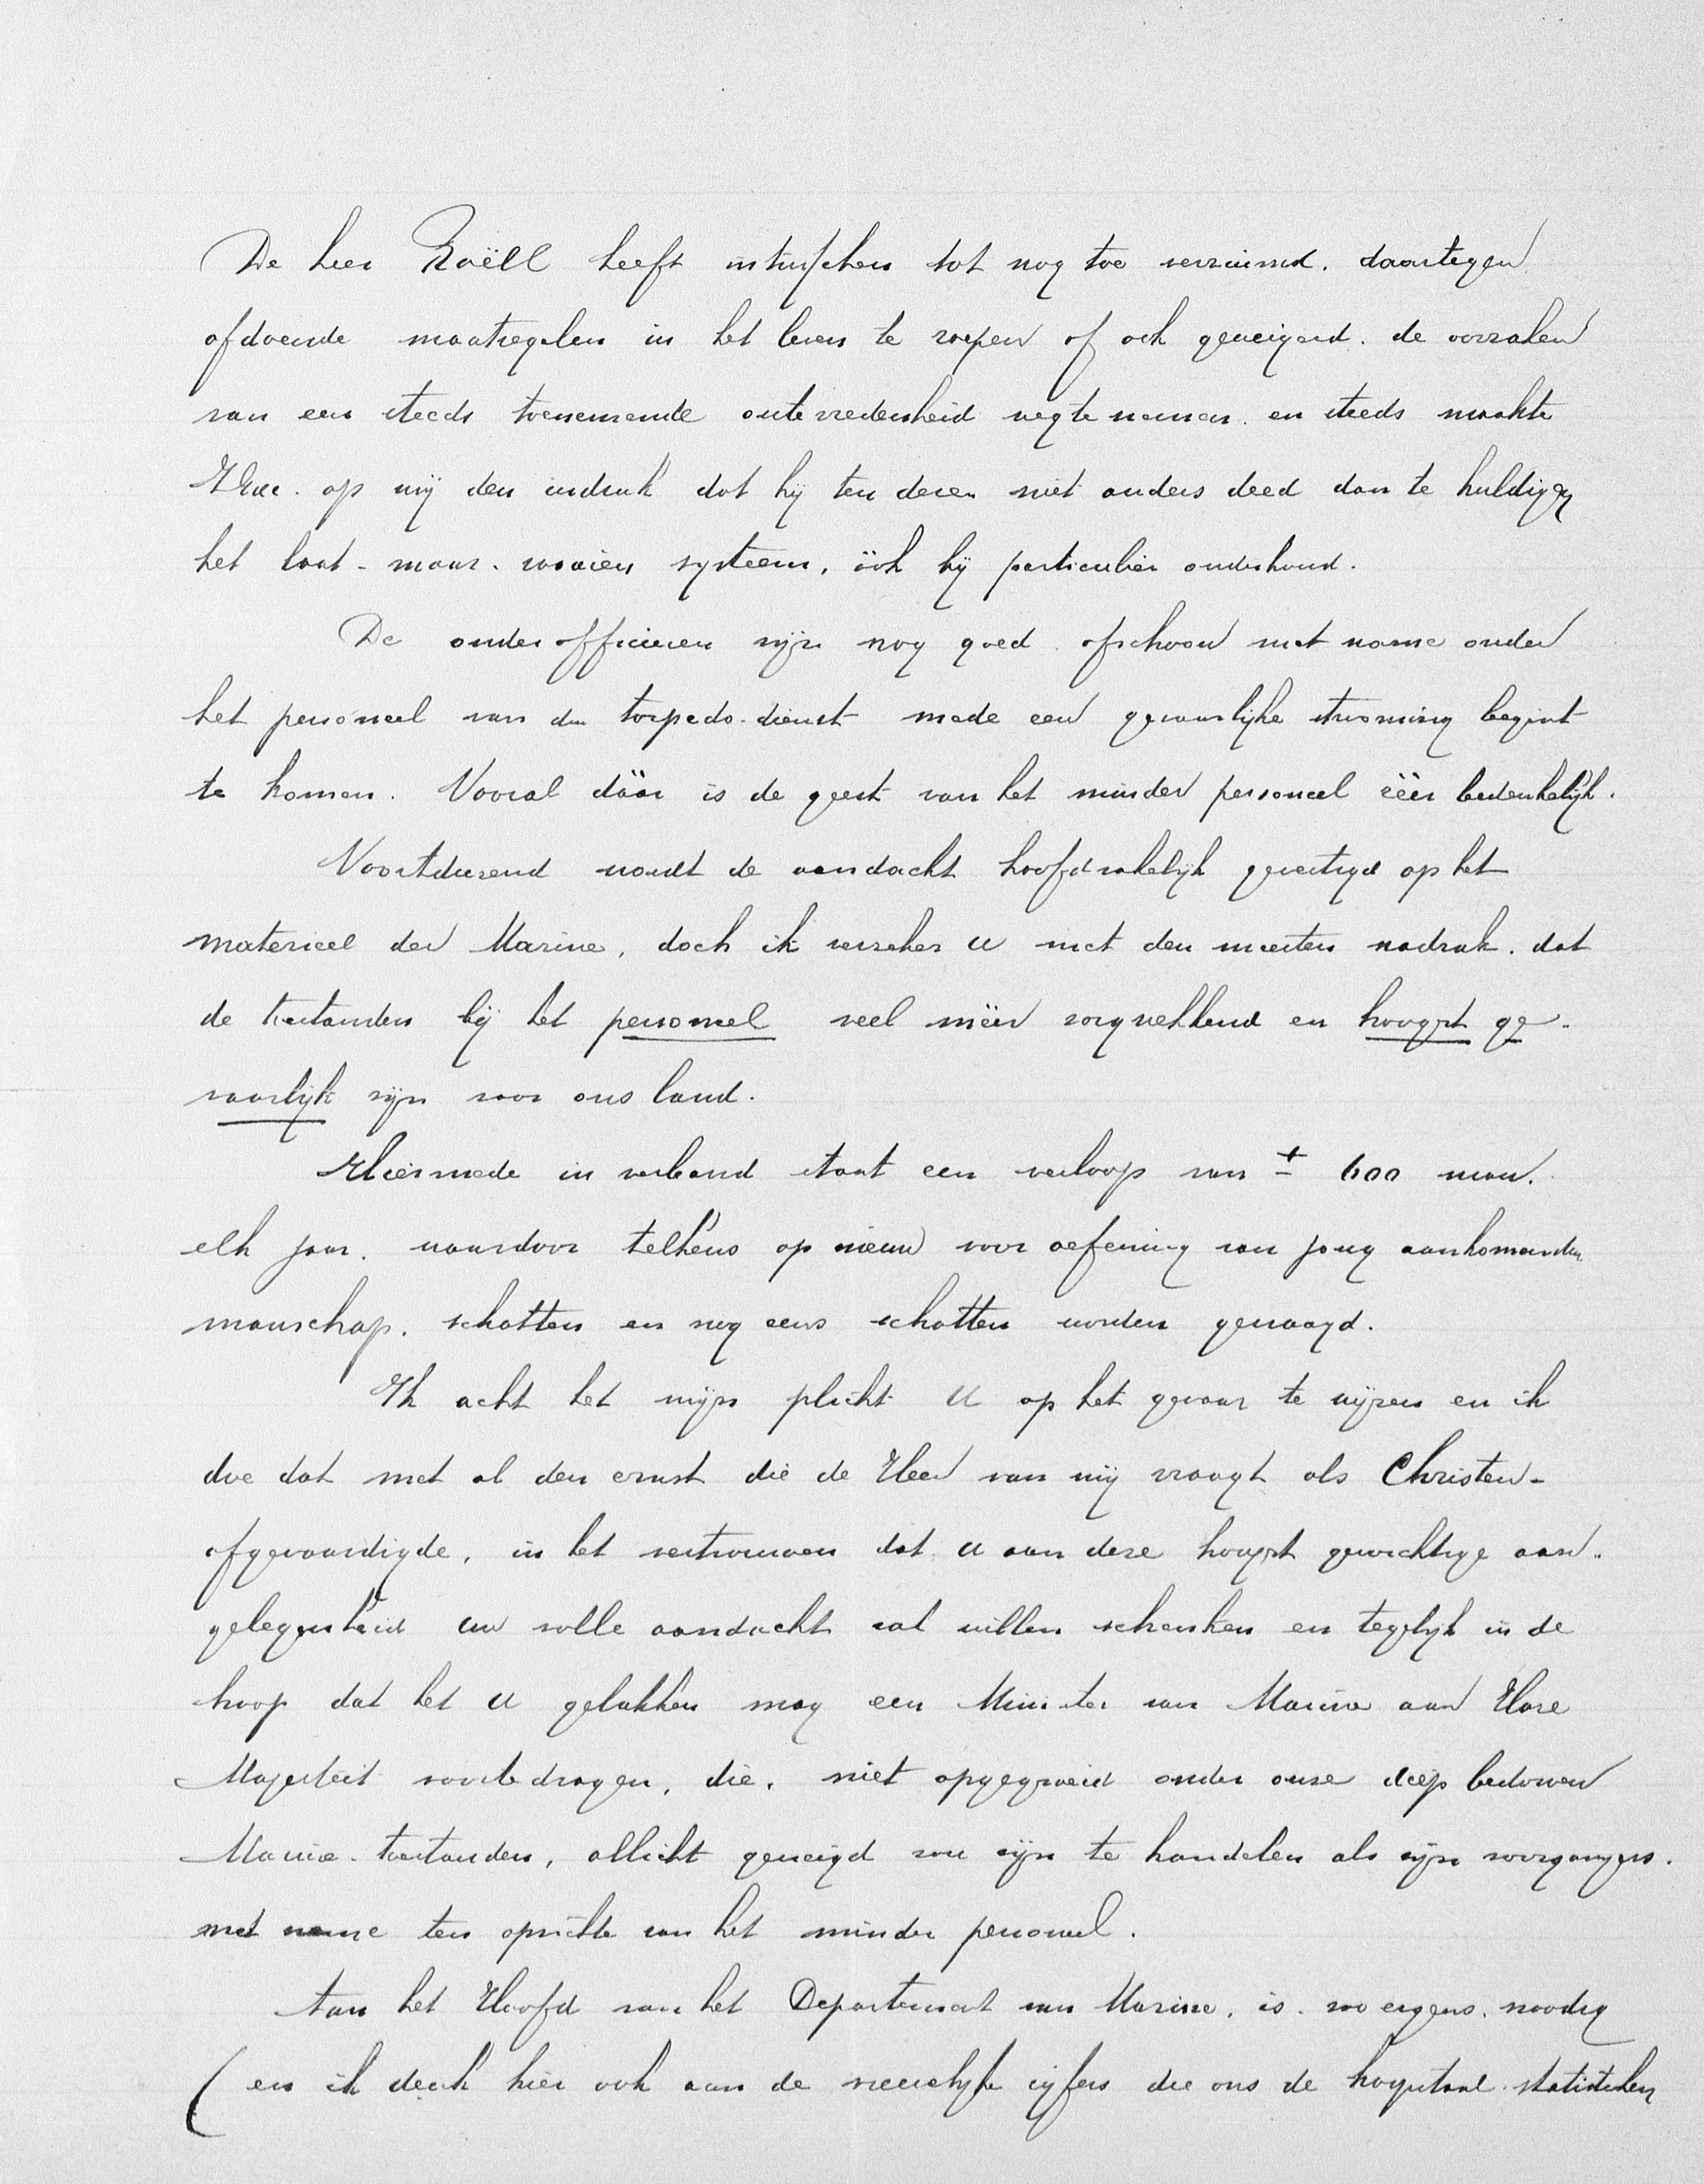 De heer Roëll heeft intusschen tot nog toe verzuimd, daartegen
afdoende maatregelen in het leven te roepen of ook geweigerd, de oorzaken
van een steeds toenemende ontevredenheid weg te nemen en steeds maakte
ZExc. op mij den indruk dat hij ten dezen niet anders deed dan te huldigen
het laat-maar-waaien systeem, óók bij particulier onderhoud.
De onderofficieren zijn nog goed, ofschoon met name onder
het personeel van den torpedo-dienst mede een gevaarlijke strooming begint
te komen. Vooral dáár is de geest van het minder personeel zéér bedenkelijk.
Voortdurend wordt de aandacht hoofdzakelijk gevestigd op het
materieel der Marine, doch ik verzeker U met den meesten nadruk, dat
de toestanden bij het personeel veel méér zorgwekkend en hoogst ge-
vaarlijk zijn voor ons land.
Hiermede in verband staat een verloop van ± 600 man
elk jaar, waardoor telkens op nieuw voor oefening van jong aankomenden
manschap, schatten en nog eens schatten worden gewaagd.
Ik acht het mijn plicht U op het gevaar te wijzen en ik
doe dat met al den ernst die de Heer van mij vraagt als Christen-
afgevaardigde, in het vertrouwen dat U aan deze hoogst gewichtige aan-
gelegenheid uw volle aandacht zal willen schenken en tegelijk in de
hoop dat het U gelukken mag een Minister van Marine aan Hare
Majesteit voortedragen, die, niet opgegroeid onder onze diep bedorven
Marine-toestanden, allicht geneigd zou zijn te handelen als zijn voorgangers,
met name ten opzichte van het minder personeel.
Aan het Hoofd van het Departement van Marine, is, zoo ergens, noodig
(en ik denk hier ook aan de vreeselijke cijfers die ons de hospitaal-statistieken